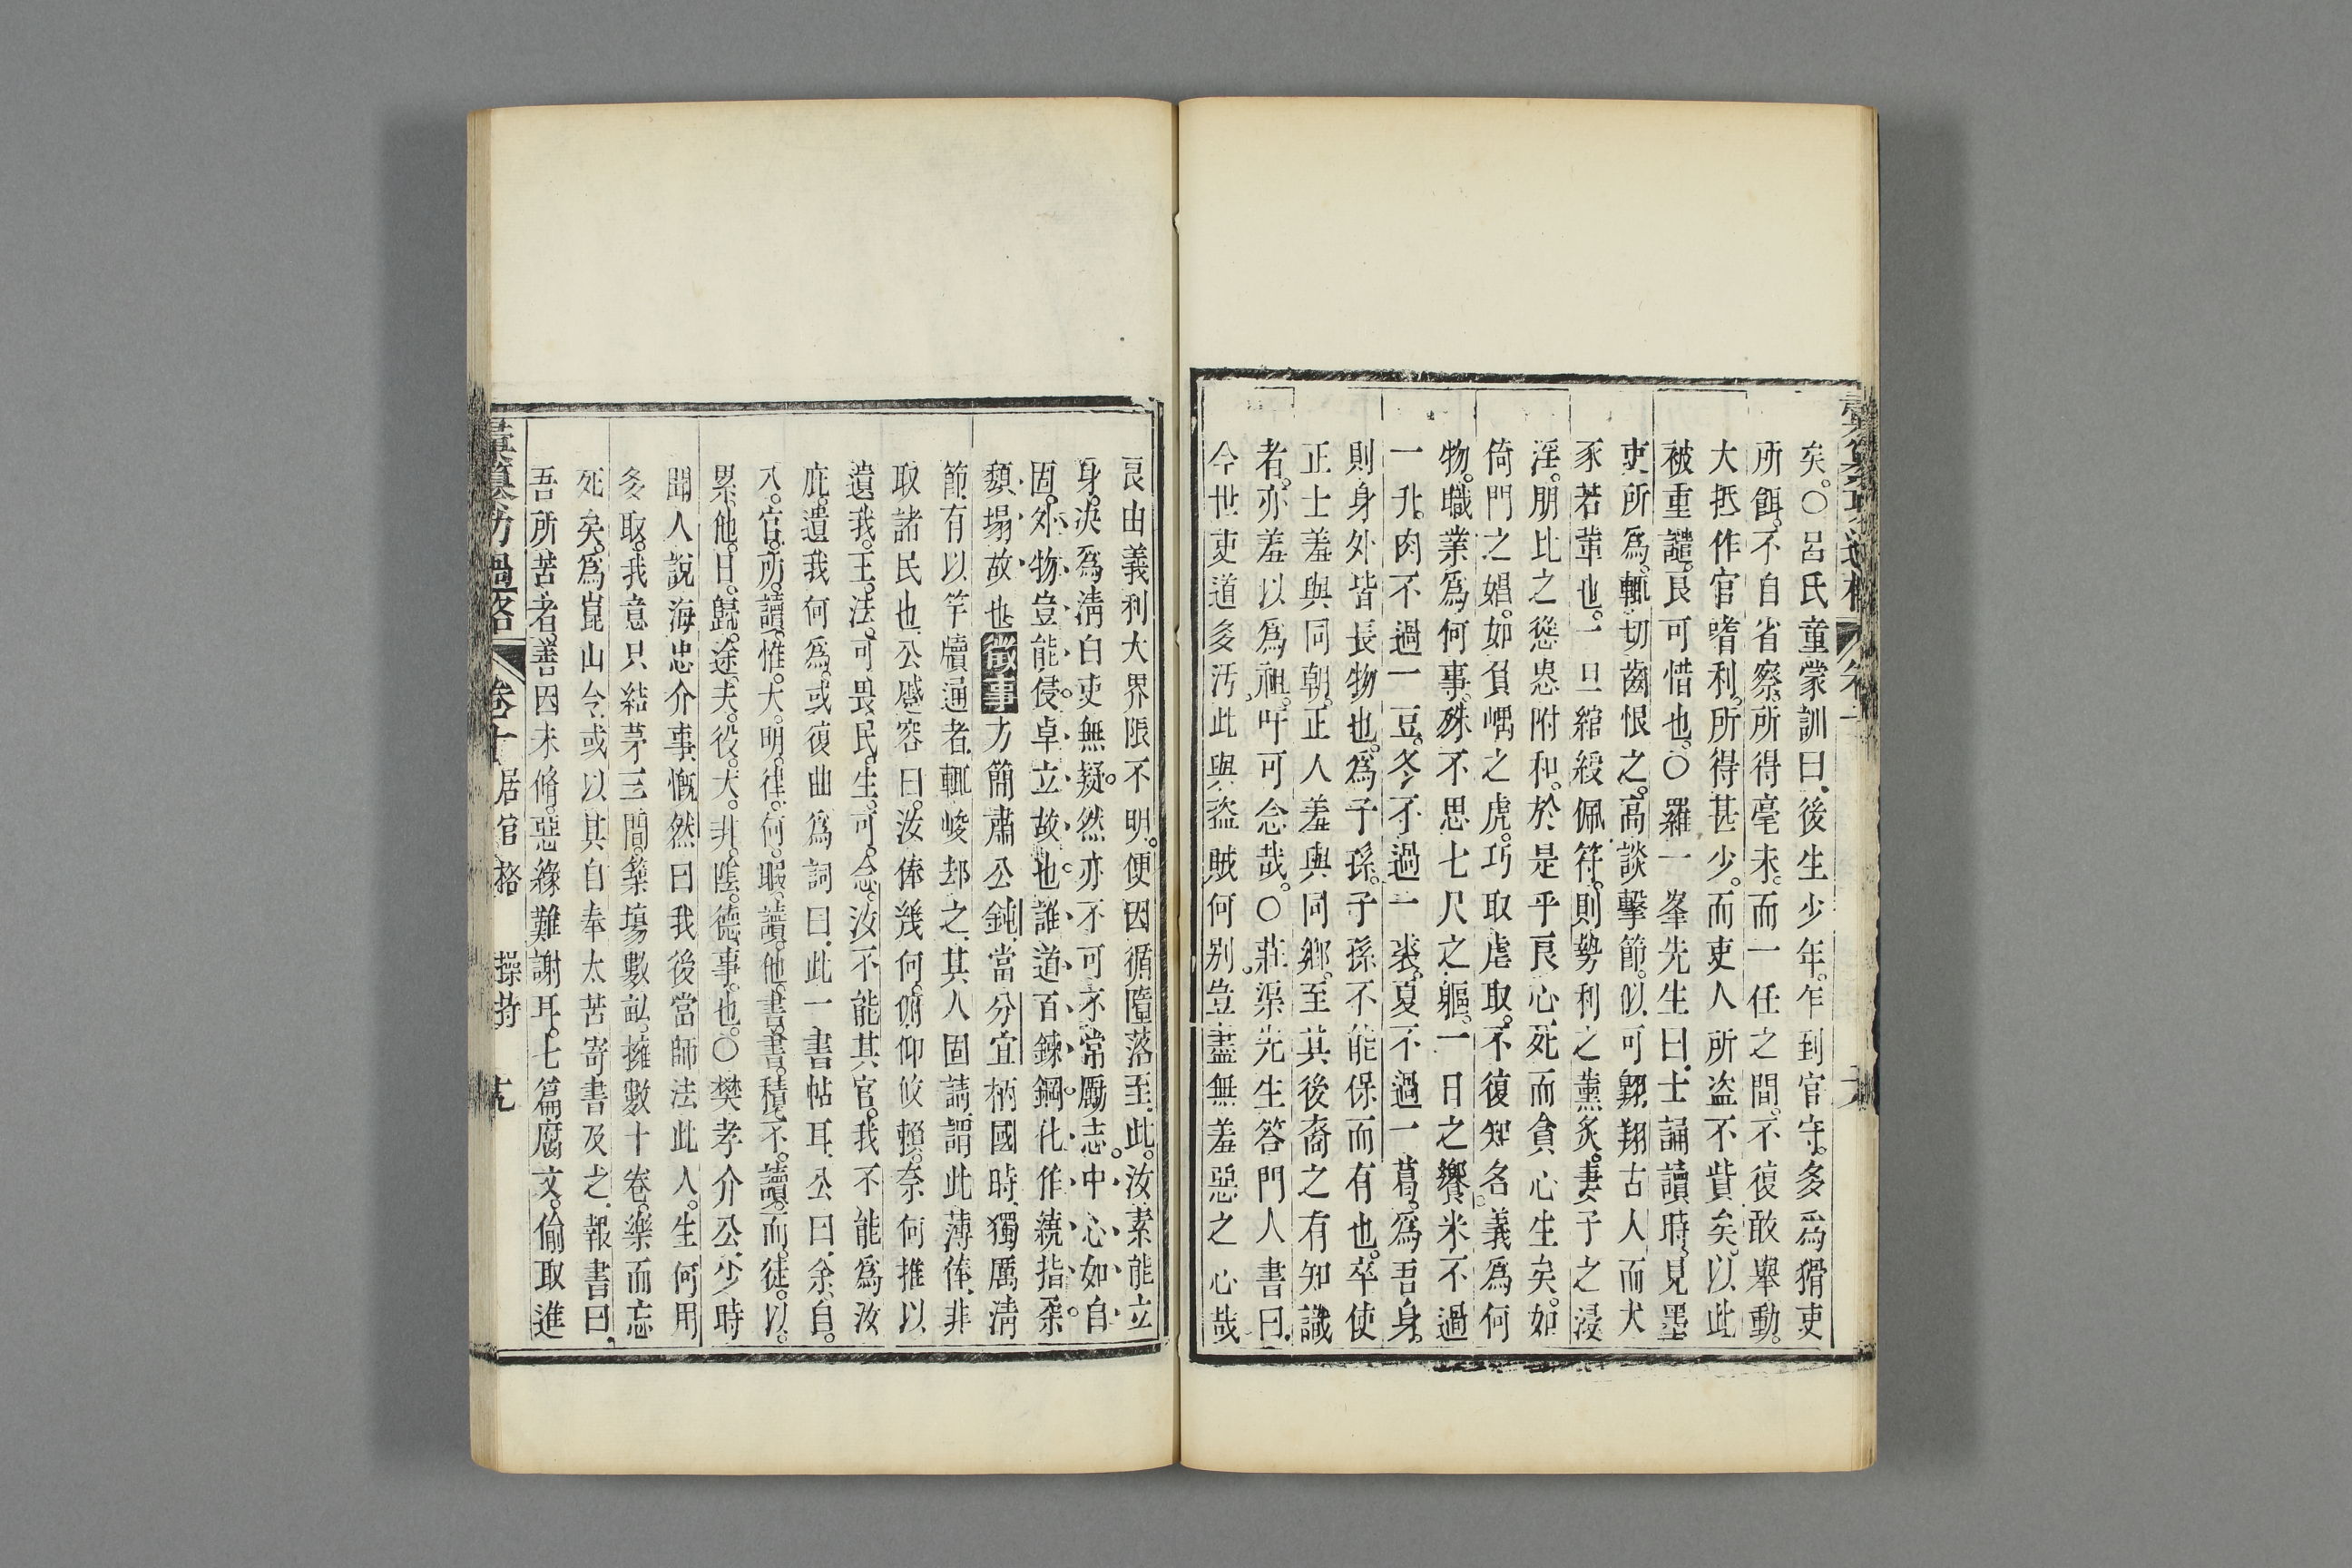 矣。○呂氏童蒙訓曰、後生少年。乍到官守。多爲猾吏
所餌。不自省察。所得毫末。而一任之間。不復敢舉動。
大抵作官嗜利。所得甚少。而吏人所盗不貲矣。以此
被重譴。良可惜也。○羅一峯先生曰、士誦讀時。見墨
吏所爲。輒切齒恨之。高談擊節。似可翱翔古人而犬
豕若輩也。一旦綰綬佩符。則勢利之薰炙。妻子之浸
淫。朋比之慫恿附和。於是乎良心死而貪心生矣。如
倚門之娼。如負嵎之虎。巧取虐取。不復知名義爲何
物。職業爲何事。殊不思七尺之軀。一日之饗。米不過
一升。肉不過一豆。冬不過一裘。夏不過一葛。爲吾身。
則身外皆長物也。爲子孫。子孫不能保而有也。卒使
正士羞與同朝。正人羞與同鄉。至其後裔之有知識
者。亦羞以爲祖。吁可念哉。○莊渠先生答門人書曰、
今世吏道多汚。此與盗賊何别。豈盡無羞惡之心哉
良由義利大界限不明。便因循隨落至此。汝素能立
身。決爲淸白吏無疑。然亦不可不常勵志。中心如自
固。外物豈能侵。卓立故也。誰道百鍊鋼。化作繞指柔。
頽塌故也 徵事 方簡肅公鈍。當分宜柄國時。獨厲淸
節。有以竿牘通者。輒峻却之。其人固請。謂此薄俸。非
取諸民也。公蹙容曰。汝俸幾何。俯仰攸賴。奈何推以
遺我。王法可畏。民生可念。汝不能其官。我不能爲汝
庇。遺我何爲。或復曲爲詞曰、此一書帖耳。公曰、余自
入官。所讀惟大明律。何暇讀他書。書積不讀。而徒以
累他日歸途夫役。大非陰德事也。○樊孝介公。少時
聞人說海忠介事。慨然曰我後當師法此人。生何用
多取。我意只結茅三間。築塲數畝。擁數十卷。樂而忘
死矣。爲崑山令。或以其自奉太苦。寄書及之。報書曰、
吾所苦者善因未脩。惡緣難謝耳。七篇腐文。偷取進
彙纂功過格 卷十 居官格 操守 十九